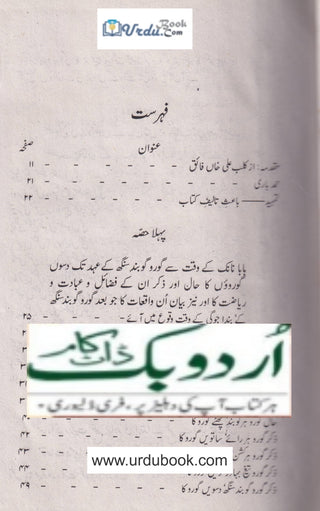 UrduBook.Com
فہرست
عنوان
صفحہ
مقدمہ: از کلب علی خاں فائق - - - - - ۱۱
حمد باری - - - - - - - ۲۱
تمہید — باعثِ تالیفِ کتاب - - - - - ۲۲
پہلا حصہ
بابا نانک کے وقت سے گورو گوبند سنگھ کے عہد تک دسوں
گوروؤں کا حال اور ذکر ان کے فضائل و عبادت و
ریاضت کا اور نیز بیان اُن واقعات کا جو بعد گورو گوبند سنگھ
کے بندا جوگی کے وقت وقوع میں آئے - - - - ۲۵
اُردو بک
ڈاٹ کام
ہر کتاب آپ کی دہلیز پر - فری ڈلیوری -
حال گورو ہرگوبند چھٹے گورو کا
ذکر گورو ہررائے ساتویں گورو کا - - - - ۴۲
ذکر گورو ہرکشن ۴۳
ذکر گورو تیغ بہادر ۴۴
ذکر گورو گوبند سنگھ دسویں گورو کا - - - - ۴۹
www.urdubook.com